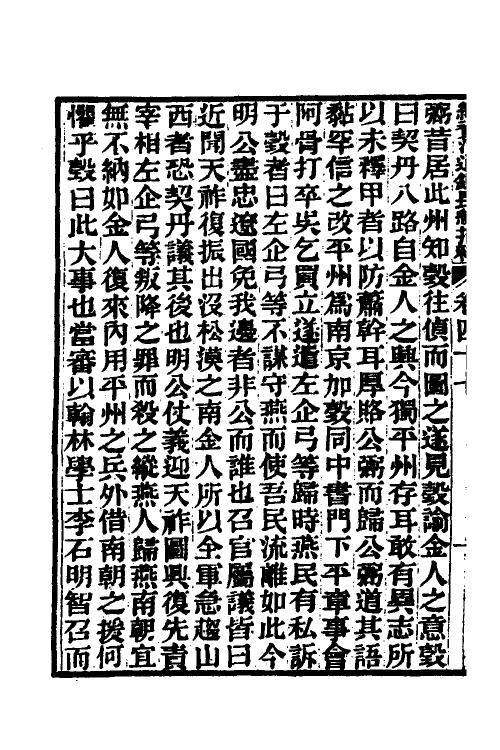 弼昔居此州知瑴往偵而圖之遂見瑴諭金人之意瑴
曰契丹八路自金人之興今獨平州存耳敢有異志所
以未釋甲者以防蕭幹耳厚賂公弼而歸公弼道其語
黏罕信之改平州爲南京加瑴同中書門下平章事會
阿骨打卒吳乞買立遂遣左企弓等歸時燕民有私訴
于瑴者曰左企弓等不謀守燕而使吾民流離如此今
明公盡忠遼國免我邊者非公而誰也召官屬議皆曰
近聞天祚復振出沒松漠之南金人所以全軍急趨山
西者恐契丹議其後也明公仗義迎天祚圖興復先責
宰相左企弓等叛降之罪而殺之縱燕人歸燕南朝宜
無不納如金人復來內用平州之兵外借南朝之援何
懼乎瑴曰此大事也當審以翰林學士李石明智召而